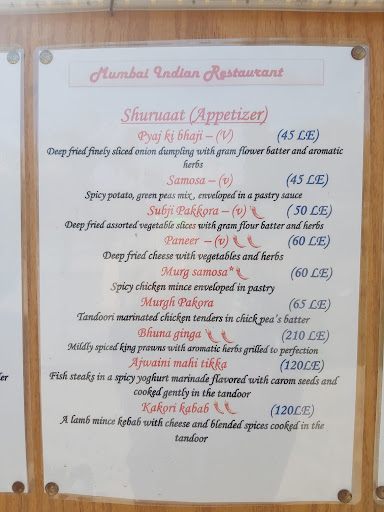 Mumbai Indian Restaurant
Shuruaat (Appetizer)
Pyaj ki bhaji – (V) (45 LE)
Deep fried finely sliced onion dumpling with gram flower batter and aromatic
herbs
Samosa – (v) (45 LE)
Spicy potato, green peas mix, enveloped in a pastry sauce
Subji Pakkora – (v) (50 LE)
Deep fried assorted vegetable slices with gram flour batter and herbs
Paneer – (v) (60 LE)
Deep fried cheese with vegetables and herbs
Murg samosa* (60 LE)
Spicy chicken mince enveloped in pastry
Murgh Pakora (65 LE)
Tandoori marinated chicken tenders in chick pea's batter
Bhuna ginga (210 LE)
Mildly spiced king prawns with aromatic herbs grilled to perfection
Ajwaini mahi tikka (120LE)
Fish steaks in a spicy yoghurt marinade flavored with carom seeds and
cooked gently in the tandoor
Kakori kabab (120LE)
A lamb mince kebab with cheese and blended spices cooked in the
tandoor